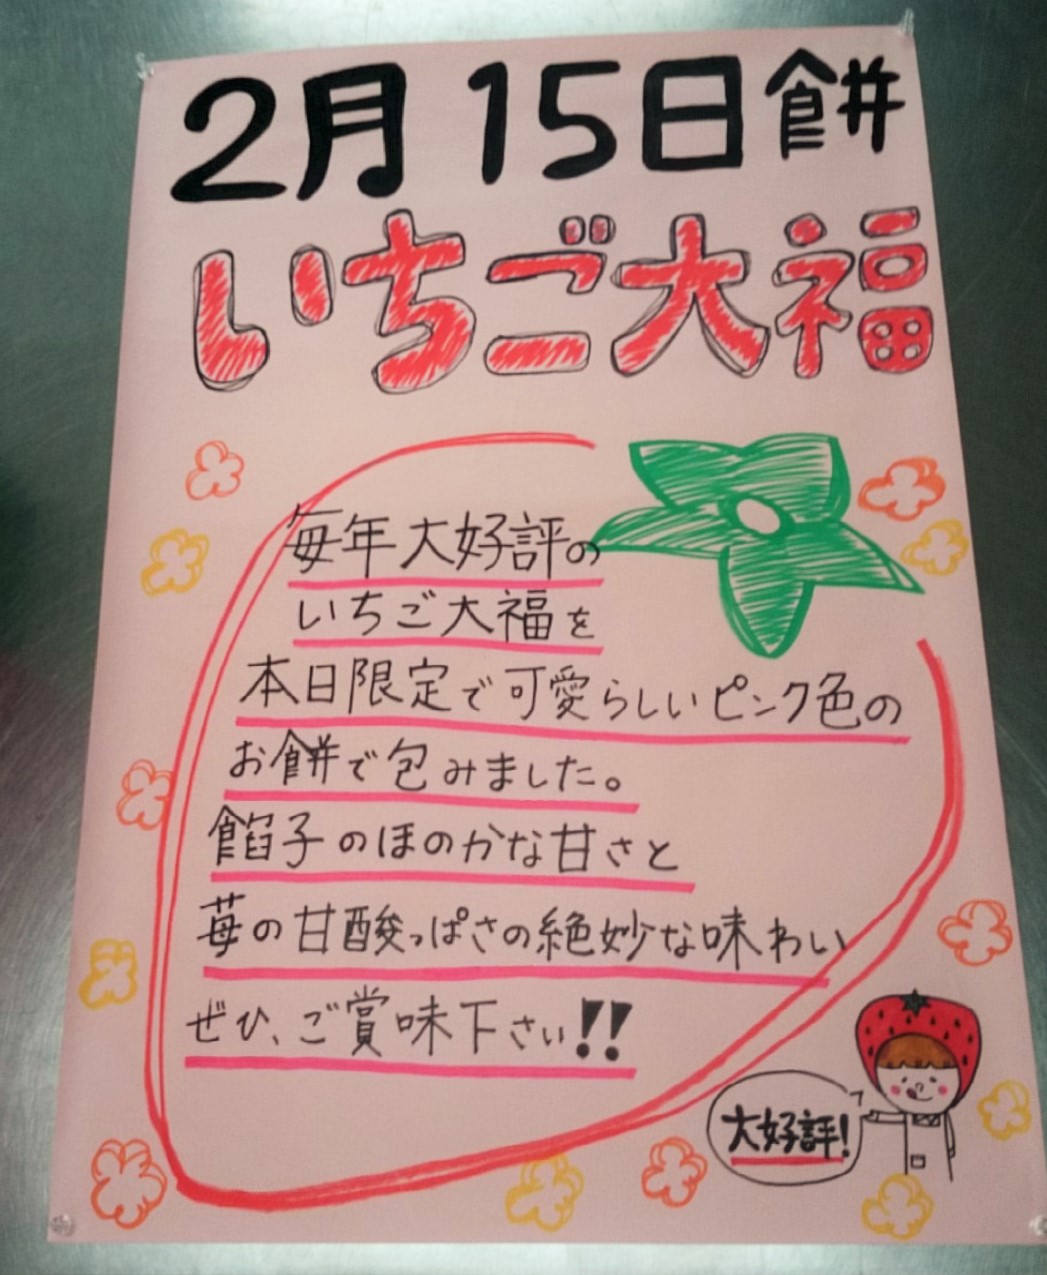 2月15日餅
いちご大福
毎年大好評の
いちご大福を
本日限定で可愛らしいピンク色の
お餅で包みました。
餡子のほのかな甘さと
苺の甘酸っぱさの絶妙な味わい
ぜひ、ご賞味下さい!!
大好評!